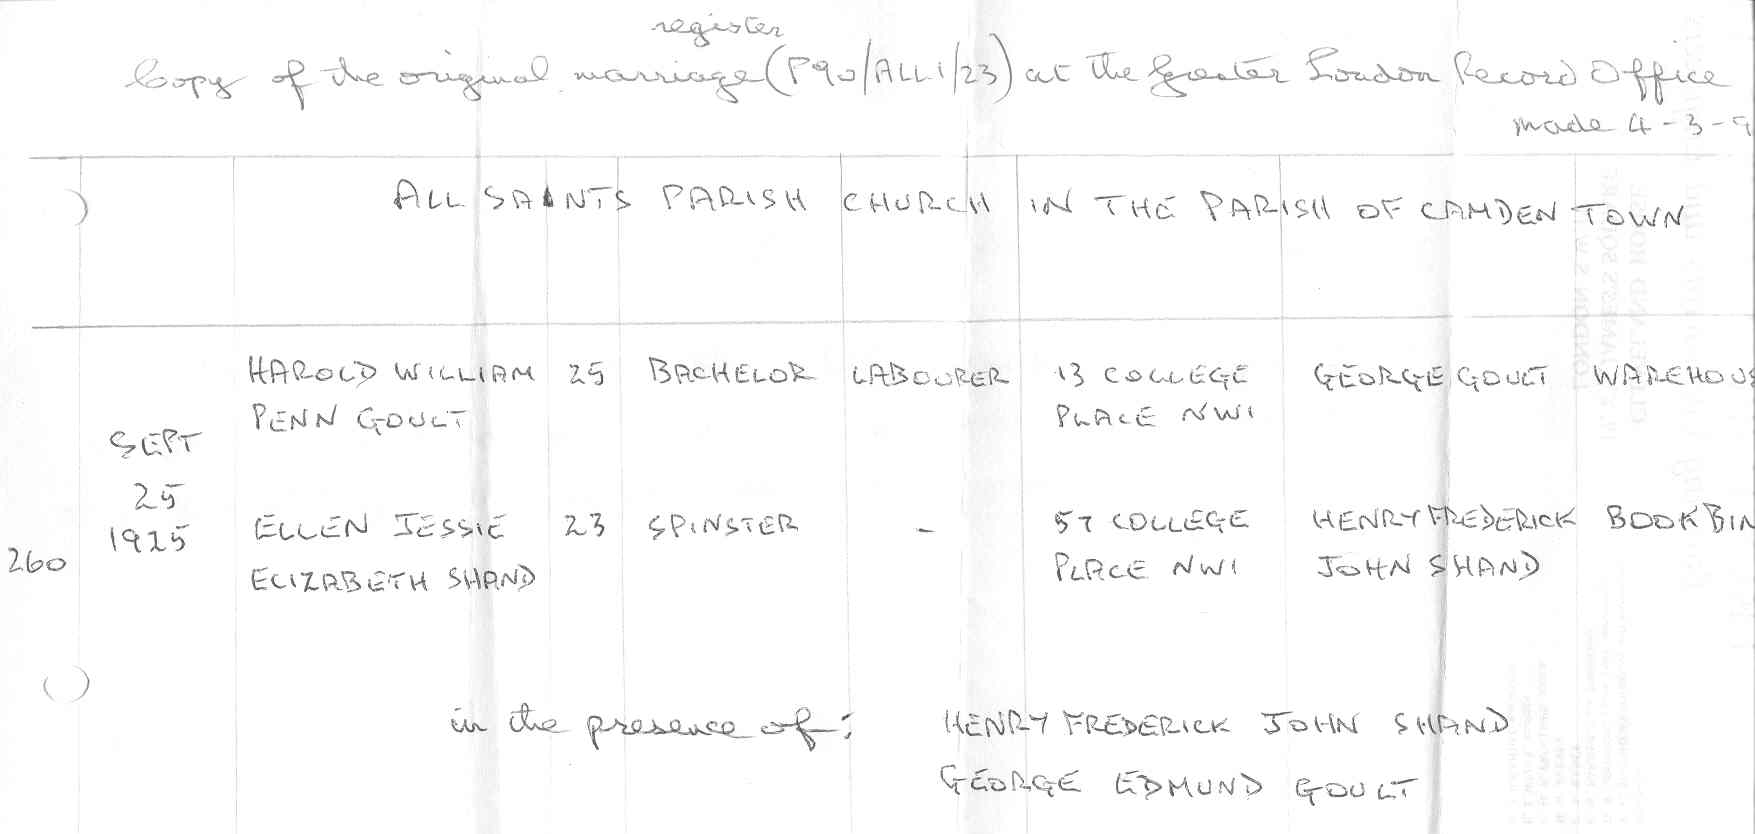 register
Copy of the original marriage (P90/ALL1/23) at the Greater London Record Office
made 4-3-9
ALL SAINTS PARISH CHURCH IN THE PARISH OF CAMDEN TOWN
260
SEPT
25
1925
HAROLD WILLIAM 25 BACHELOR LABOURER 13 COLLEGE GEORGE GOULT WAREHOUS
PENN GOULT PLACE NW1
ELLEN JESSIE 23 SPINSTER - 57 COLLEGE HENRY FREDERICK BOOKBIN
ELIZABETH SHAND PLACE NW1 JOHN SHAND
in the presence of: HENRY FREDERICK JOHN SHAND
GEORGE EDMUND GOULT